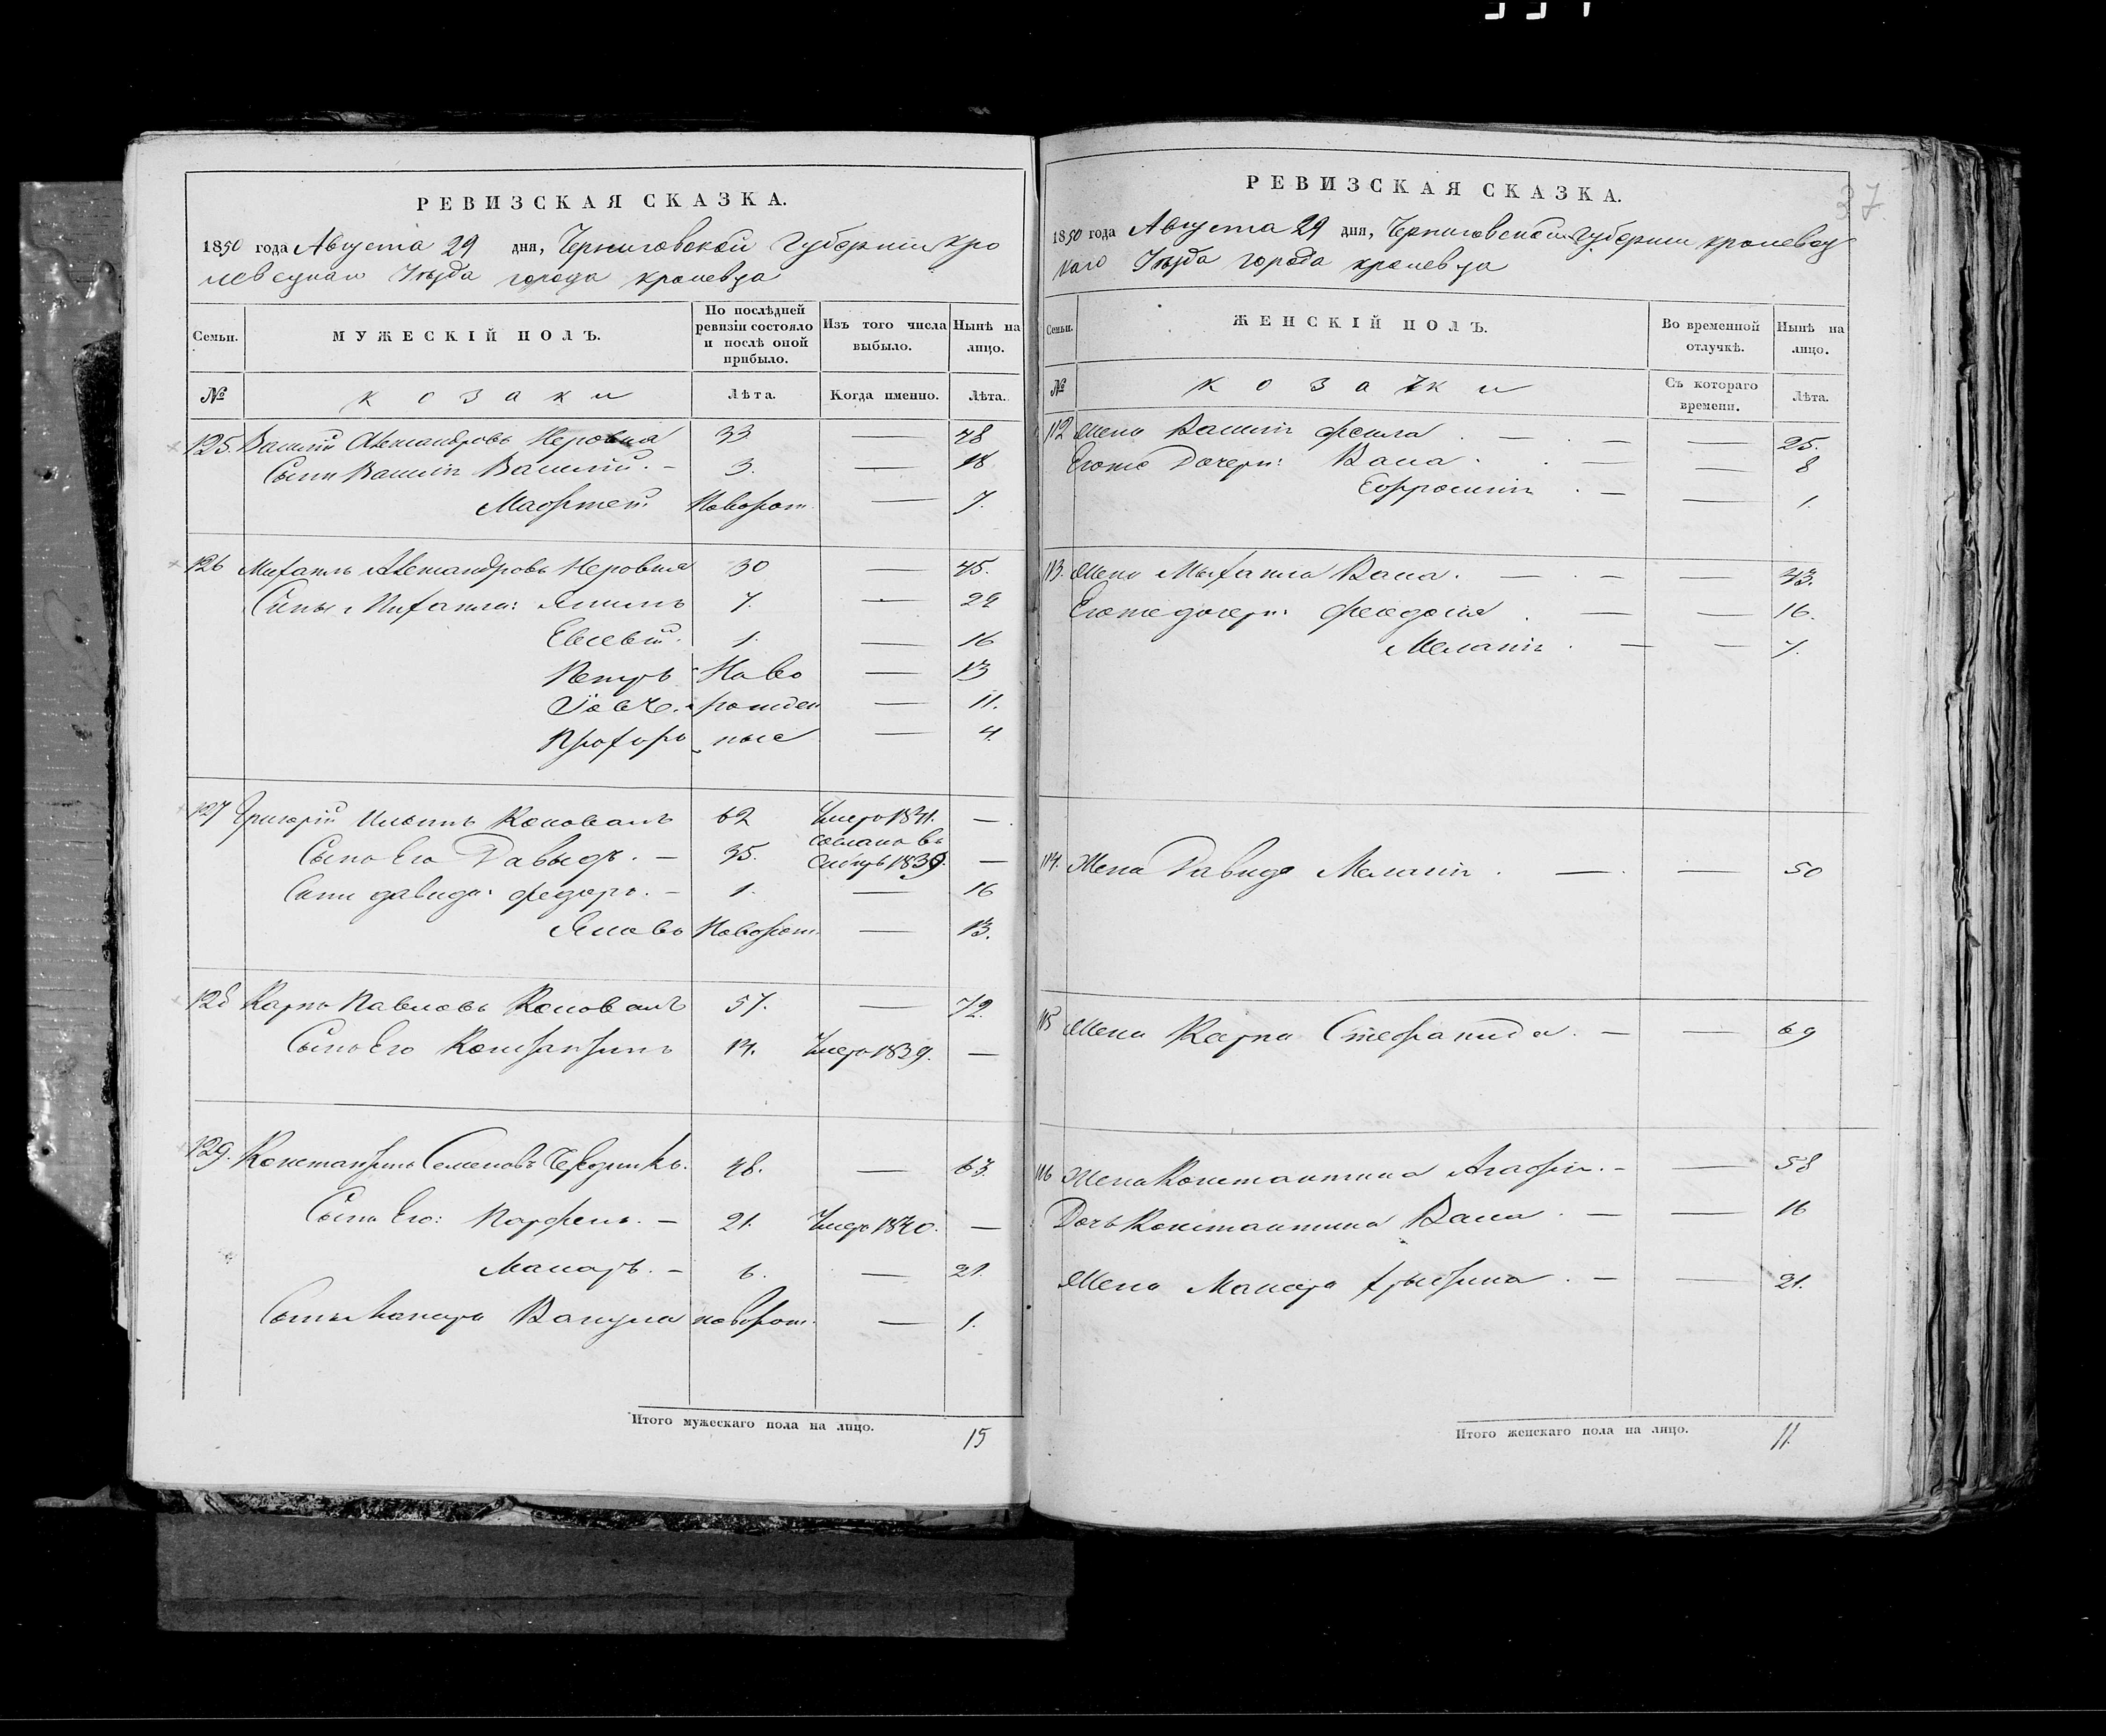 РЕВИЗСКАЯ СКАЗКА.
1850 года Августа 29 дня, Черниговской Губернии кро
левецкаго Уѣзда города кролевца
Семьи. МУЖЕСКІЙ ПОЛЪ. По послѣдней ревизіи состояло и послѣ оной прибыло. Изъ того числа выбыло. Нынѣ на лицо.
№ козаки Лѣта. Когда именно. Лѣта.
125. Василій Александровъ 33 — 48
Сыны Василія Василій. — 3. — 18
Новорож. — 7.
126 Михаилъ Александровъ 30 — 45.
Сыны Михаила: 7. — 22
Евсевій. 1. — 16
Петръ Ново — 13
Іовъ. рожден — 11.
Прохоръ ные — 4.
127 Григорій Коновалъ 62 Умеръ 1841. —
Сынъ Его Давыдъ. — 35. сосланъ въ Сибирь 1839. —
Сыны давида: федоръ. — 1. — 16
Яковъ Новорож. — 13.
128 Карпъ Павловъ Коновалъ 57. — 72.
Сынъ Его Константинъ 14. Умеръ 1839. —
129. Константинъ Семеновъ 48. — 63.
Сынъ Его: Парфенъ. — 21. Умеръ 1840. —
Макаръ. — 6. — 21.
Сынъ Макара Вакула новорож. — 1.
Итого мужескаго пола на лицо. 15
37.
РЕВИЗСКАЯ СКАЗКА.
1850 года Августа 29 дня, Черниговской Губернии кролевец
каго Уѣзда города кролевца
Семьи. ЖЕНСКІЙ ПОЛЪ. Во временной отлучкѣ. Нынѣ на лицо.
№ козачки Съ котораго времени. Лѣта.
112 Жена Василія Фекла . — . — — 25.
Егоже Дочери: . . — — 8
Ефросинія . — — 1.
113. Жена Михаила . — . — — 43.
Егоже дочери: феодосія . — — 16.
Меланія . — — 7.
114. Жена Давида Меланія . — . — 50
115 Жена Карпа Стефанида . — — 69
116 Жена Константина Агафія . — — 58
Дочь Константина . — — 16
Жена Макара . — — 21.
Итого женскаго пола на лицо. 11.